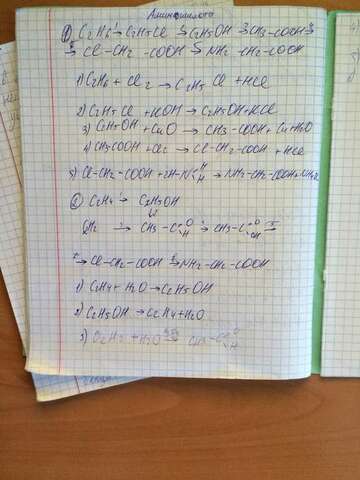 Аминокислоты
① C2H6 →¹ C2H5Cl →² C2H5OH →³ CH3-COOH →⁴
→⁴ Cl-CH2-COOH →⁵ NH2-CH2-COOH
1) C2H6 + Cl2 → C2H5Cl + HCl
2) C2H5Cl + KOH → C2H5OH + KCl
3) C2H5OH + CuO → CH3-COOH + Cu + H2O
4) CH3COOH + Cl2 → Cl-CH2-COOH + HCl
5) Cl-CH2-COOH + 2H-N H H → NH2-CH2-COOH + NH4Cl
② C2H4 → C2H5OH
C2H2 → CH3-C O H → CH3-C O OH →
→ Cl-CH2-COOH → NH2-CH2-COOH
1) C2H4 + H2O → C2H5OH
2) C2H5OH → C2H4 + H2O
3) C2H2 + H2O → CH3-C O H